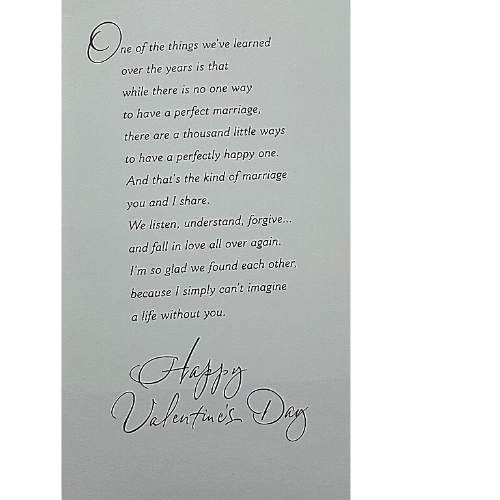 One of the things we've learned
over the years is that
while there is no one way
to have a perfect marriage,
there are a thousand little ways
to have a perfectly happy one.
And that's the kind of marriage
you and I share.
We listen, understand, forgive...
and fall in love all over again.
I'm so glad we found each other,
because I simply can't imagine
a life without you.
Happy
Valentine's Day